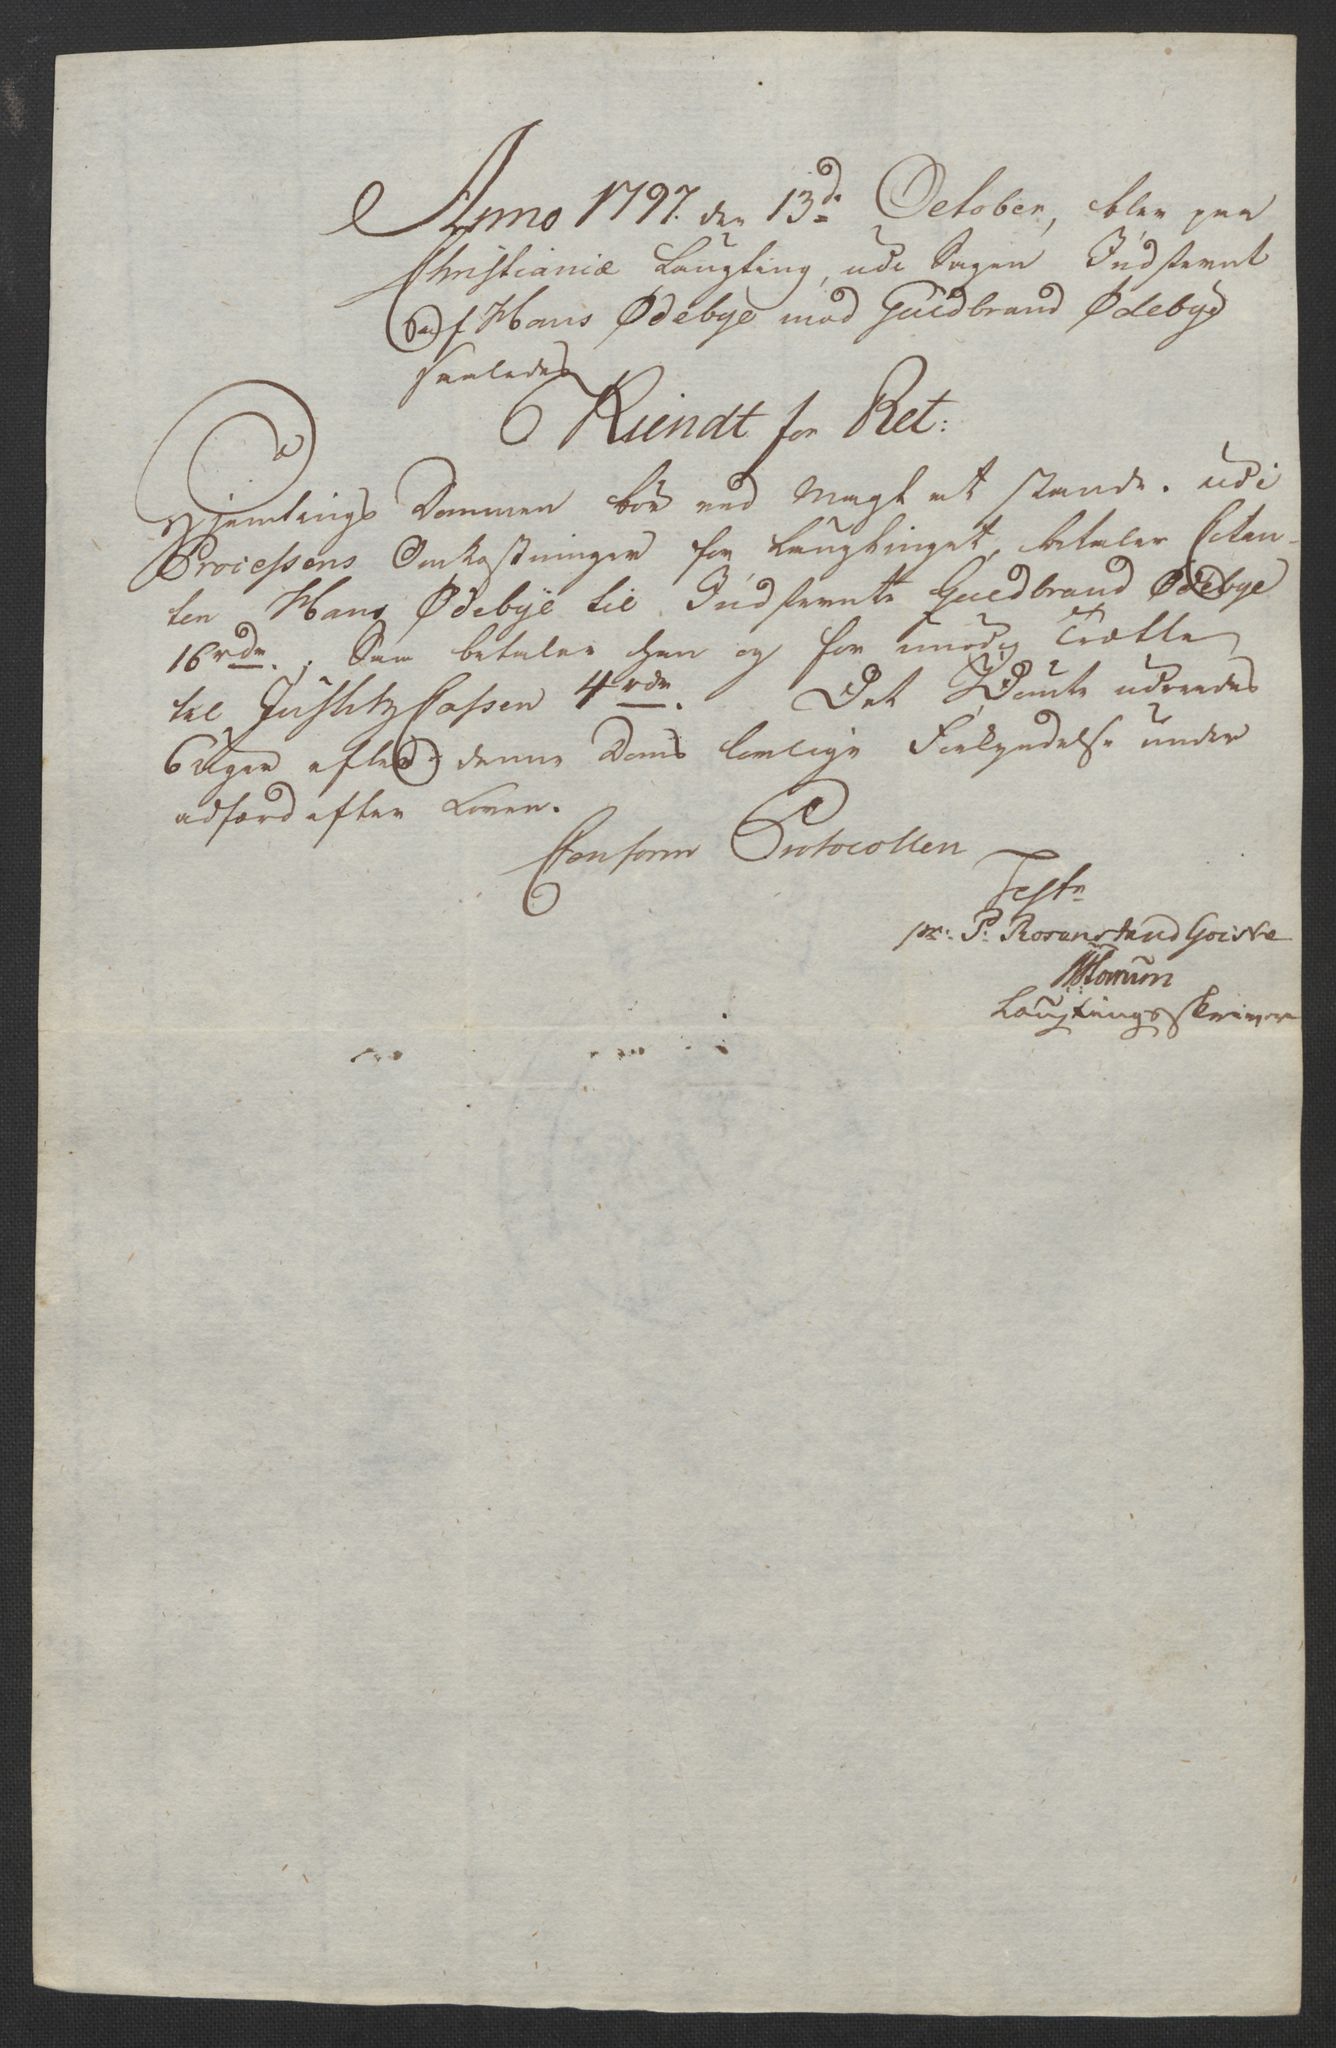 Anno 1797. den 13de October, blev paa
Christianiæ Laugting, udi Sagen Indstevnt
af Hans Ødebye mod Guldbrand Ødebye
saaledes
Kiendt for Ret:
Hjemtings Dommen bør ved Magt at stande. udi
Processens Omkostninger for Laugtinget, betaler Citan-
ten Hans Ødebye til Indstevnte Guldbrand Ødebye
16 rdr. Saa betaler han og for unødig Trætte
til Justitz Cassen 4 rdr. Det Idømte udreedes
6 Uger efter denne Doms lovlige Forkyndelse under
adfærd efter Loven.
Conform Protocollen
Teste
pr: P: Rosenstand Goiske
Laugtingsskriver